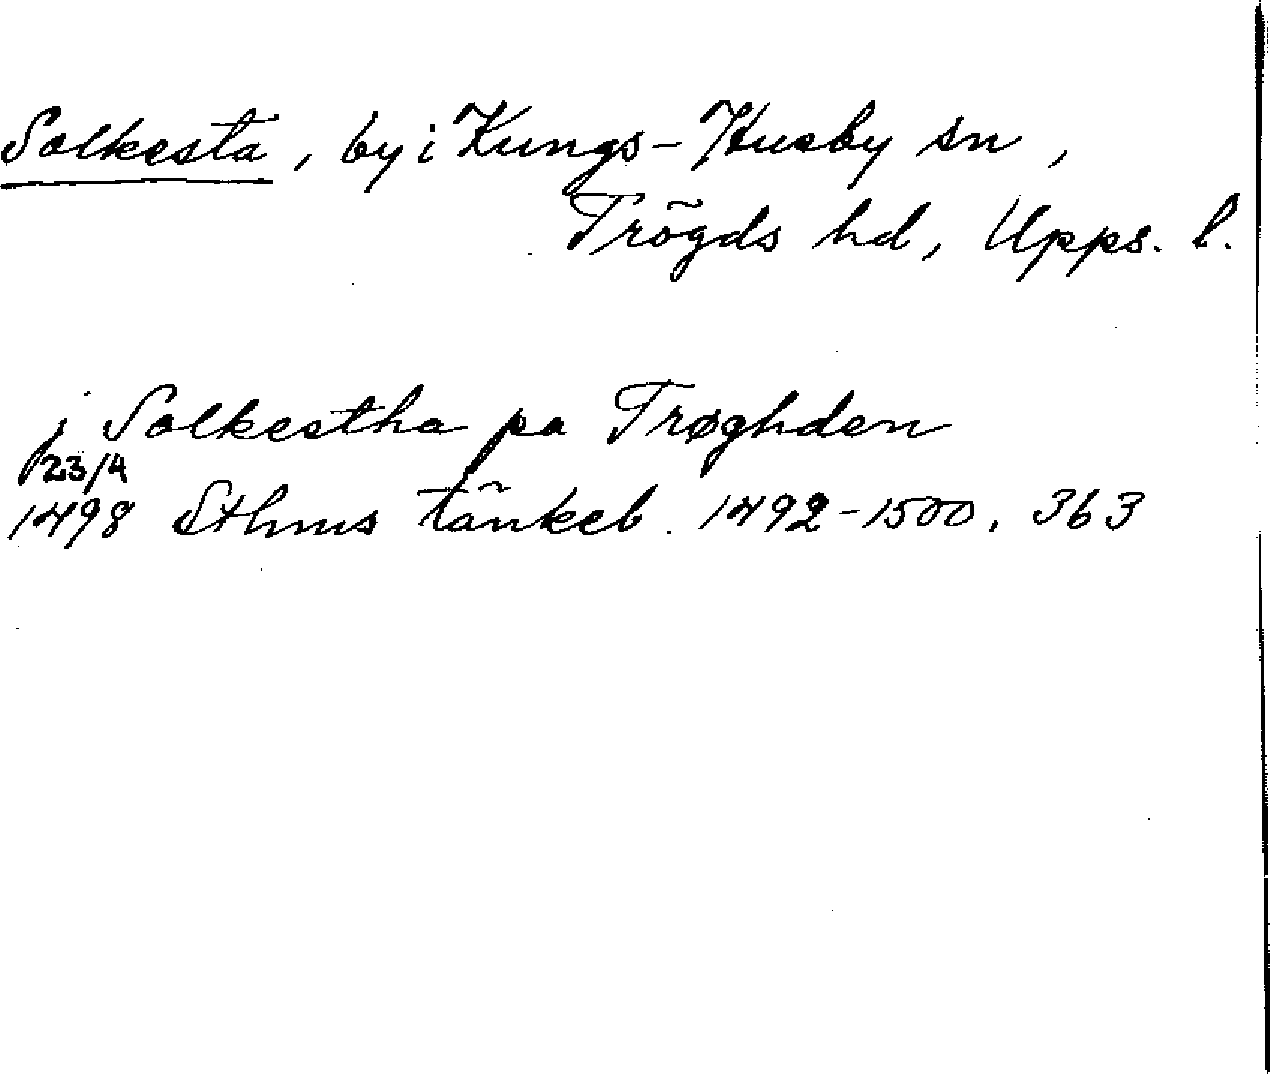 Solkesta, by i Kungs-Husby sn,
Trögds hd, Upps. l.
j Solkestha pa Trøghden
23/4
1498 Sthms tänkeb. 1492-1500, 363